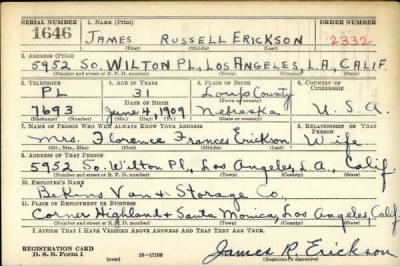 SERIAL NUMBER 1. NAME (Print) ORDER NUMBER
1646 JAMES RUSSELL ERICKSON 2332
(First) (Middle) (Last)
2. ADDRESS (Print)
5952 SO. WILTON PL., LOS ANGELES, L.A., CALIF.
(Number and street or R. F. D. number) (Town) (County) (State)
3. TELEPHONE 4. AGE IN YEARS 5. PLACE OF BIRTH 6. COUNTRY OF CITIZENSHIP
PL 31 Loup County
DATE OF BIRTH (Town or county)
7693 June 4, 1909 Nebraska U. S. A.
(Mo.) (Day) (Yr.) (State or country)
7. NAME OF PERSON WHO WILL ALWAYS KNOW YOUR ADDRESS 8. RELATIONSHIP OF THAT PERSON
Mrs. Florence Frances Erickson Wife
(Mr., Mrs., Miss) (First) (Middle) (Last)
9. ADDRESS OF THAT PERSON
5952 So. Wilton Pl., Los Angeles, L.A., Calif
(Number and street or R. F. D. number) (Town) (County) (State)
10. EMPLOYER'S NAME
Bekins Van & Storage Co.
11. PLACE OF EMPLOYMENT OR BUSINESS
Corner Highland & Santa Monica, Los Angeles Calif
(Number and street or R. F. D. number) (Town) (County) (State)
I AFFIRM THAT I HAVE VERIFIED ABOVE ANSWERS AND THAT THEY ARE TRUE.
REGISTRATION CARD
D. S. S. Form 1 (over) 16—17105 James R. Erickson